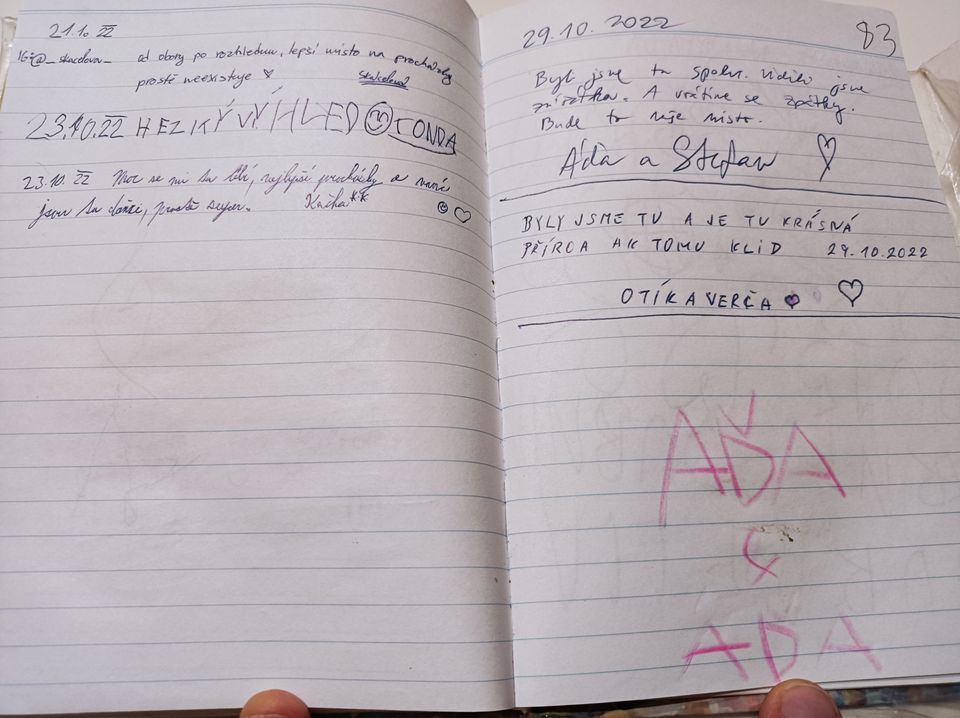 21.10.22
IG:@_skacelova_ od obory po rozhlednu, lepší místo na procházky
prostě neexistuje ♥ Skácelová
23.10.22 HEZKÝ VÝHLED ☺ TONDA
23.10.22 Moc se mi tu líbí, nejlepší procházky a
jsou tu, prostě super. **
☺ ♡
29.10.2022
83
Byli jsme tu spolu. Viděli jsme
zvířátka. A vrátíme se zpátky.
Bude to naše místo.
Áďa a Štefan ♡
BYLY JSME TU A JE TU KRÁSNÁ
PŘÍRODA A K TOMU KLID 29.10.2022
OTÍK A VERČA ♥ ♡
AĎA
AĎA